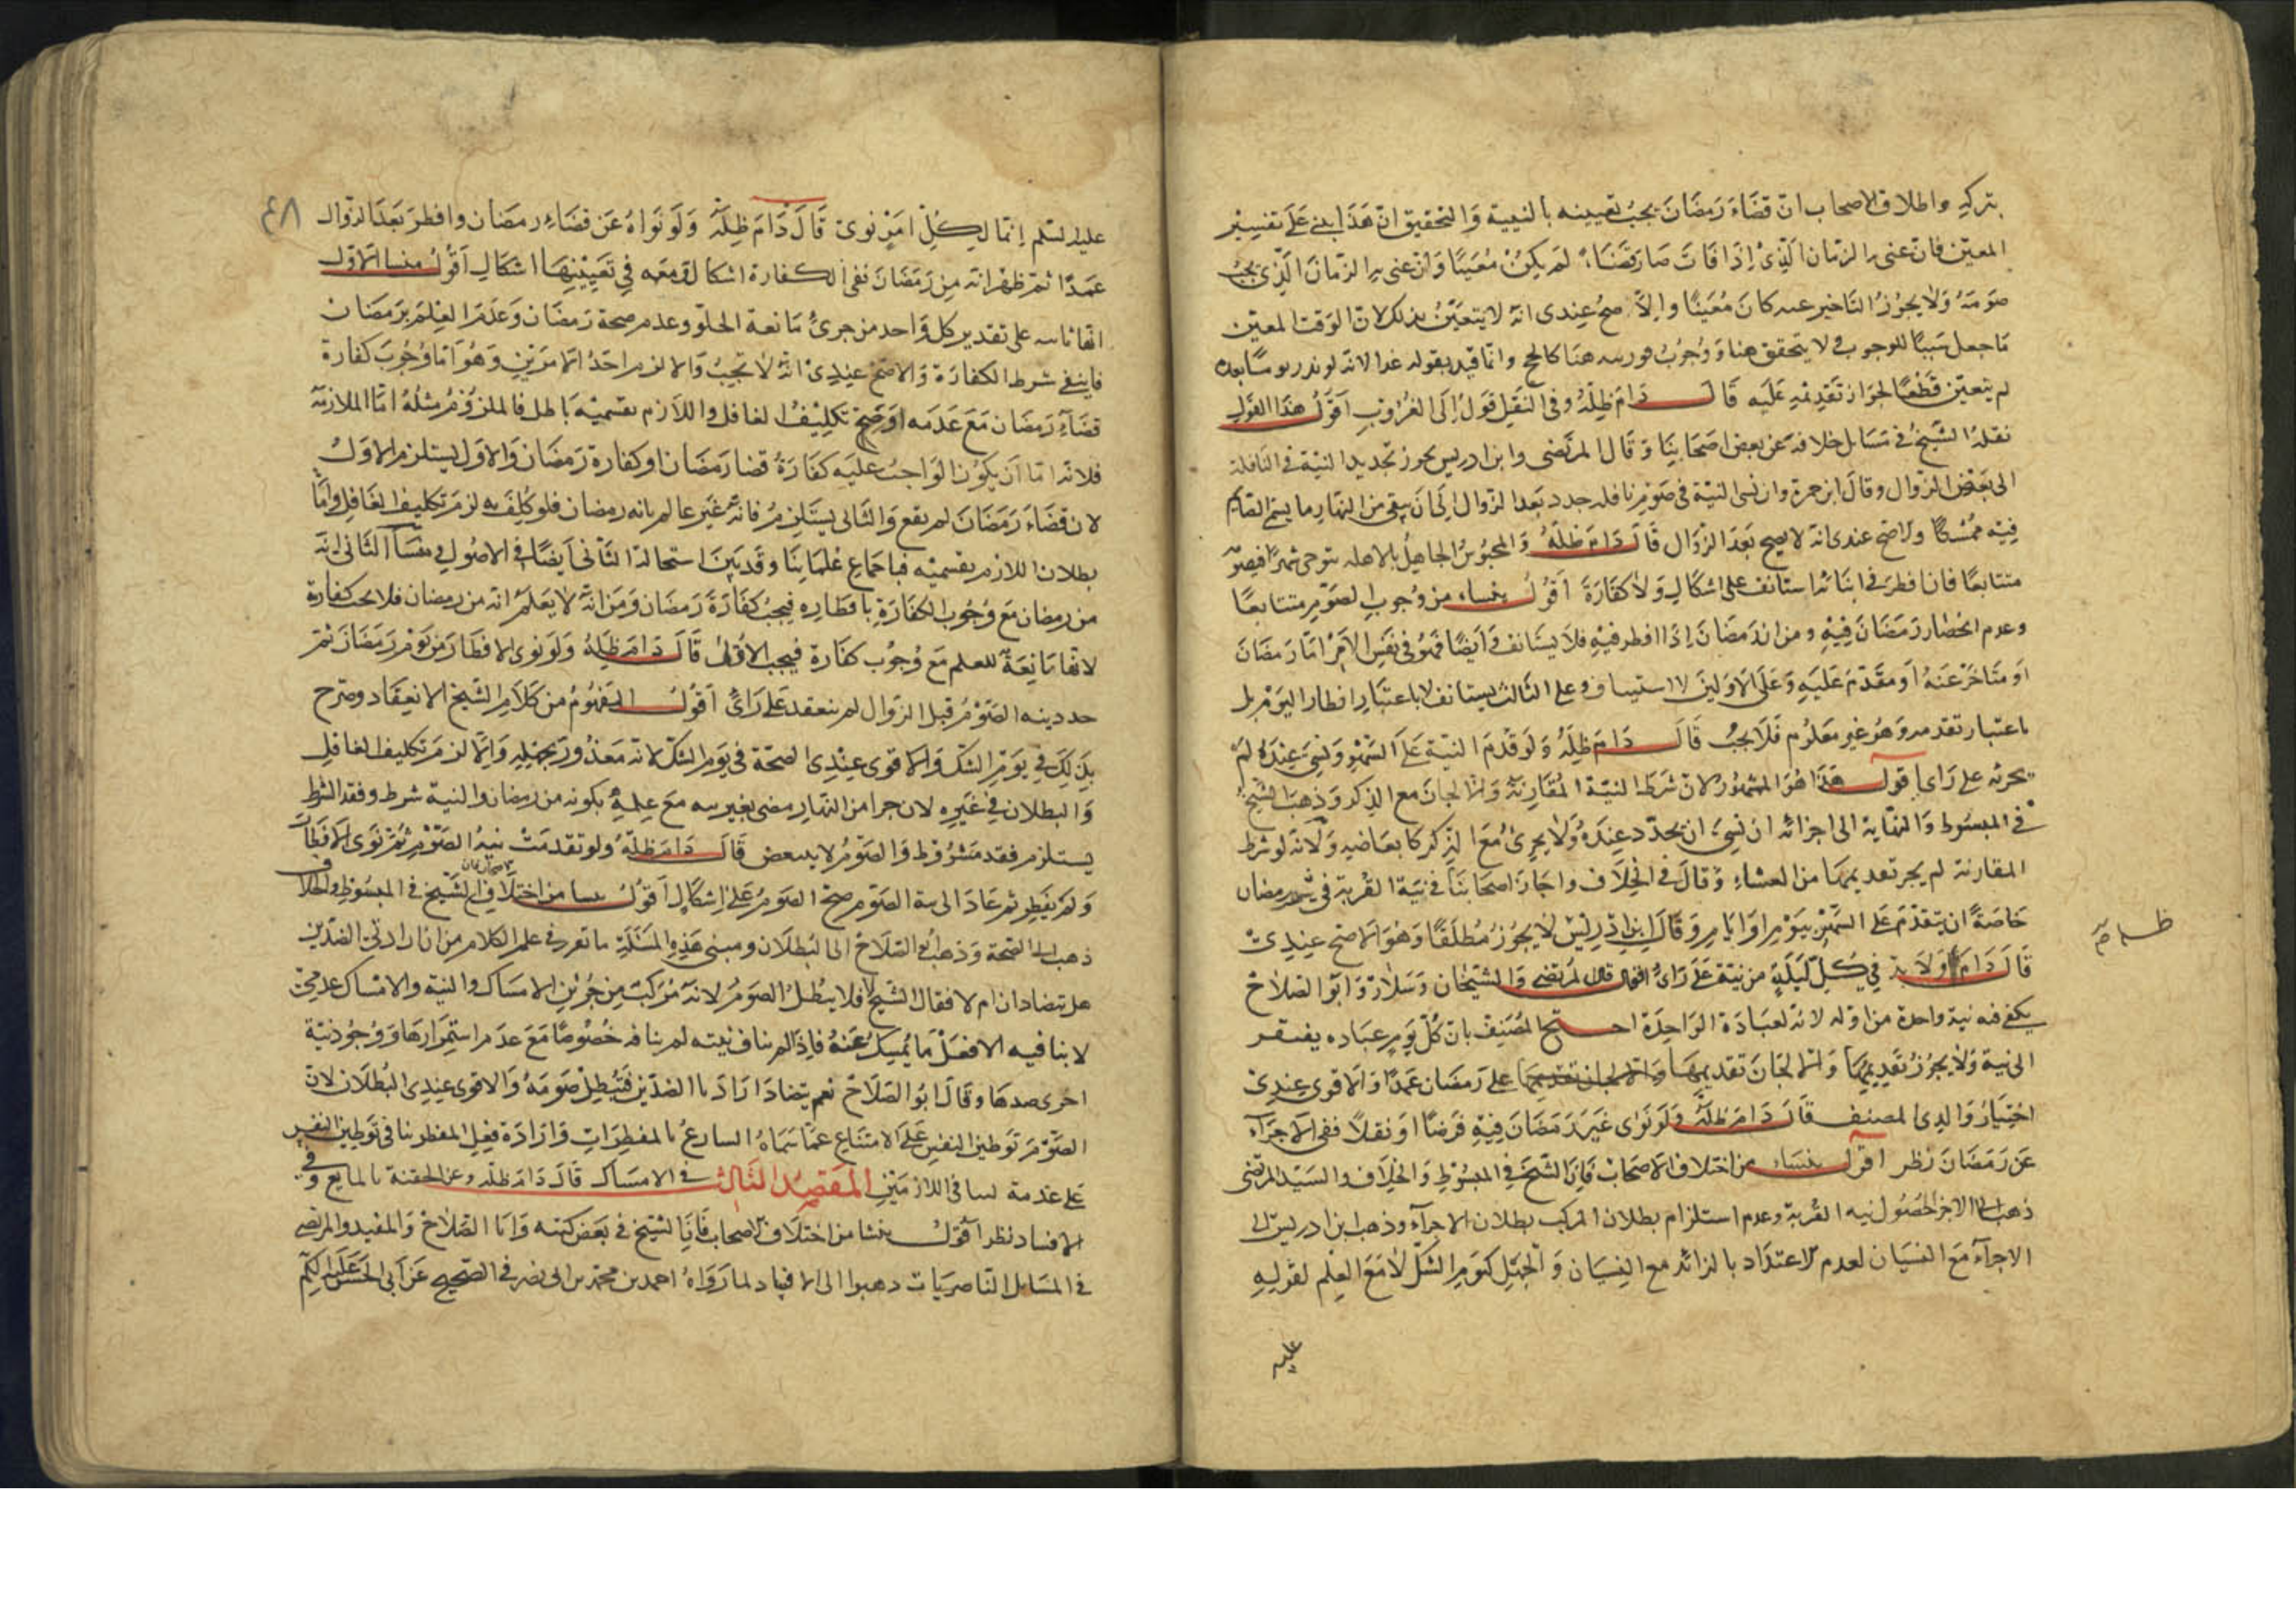 بتركه واطلاق الاصحاب ان قضاء رمضان يجب تعيينه بالنية والتحقيق ان هذا يبنى على تفسير
المعين فان عنى به الزمان الذى اذا فات صار قضاء لم يكن معينا وان عنى به الزمان الذى يجب
صومه ولا يجوز التاخير عنه كان معينا والا صح عندى انه لا يتعين بذلك لان الوقت المعين
ما جعل سببا للوجوب ولا يتحقق هنا ووجوب هنا كالحج وانما قيد بقوله غدا لانه لو نذر يوما
لم يتعين قطعا لجواز تقديمه عليه قال دام ظله وفى النفل قول الى الغروب اقول هذا القول
نقله الشيخ فى مسايل خلافه عن بعض اصحابنا وقال المرتضى وابن ادريس يجوز تجديد النية فى النافلة
الى بعد الزوال وقال ابن حمزة وان نسى النية فى صوم نافلة جدد بعد الزوال ان كان بقى من النهار ما يتم الصيام
فيه ممسكا والاصح عندى انه لا يصح بعد الزوال قال دام ظله والمحبوس الجاهل بالاهلة يتوخى شهرا فيصومه
متتابعا فان افطر فى اثنائه استانف على اشكال ولا كفارة اقول ينشاء من وجوب الصوم متتابعا
وعدم انحصار رمضان فيه ومن ان رمضان اذا افطر فيه فلا يستانف وايضا فهو فى نفس الامر اما رمضان
او متاخر عنه او مقدم عليه وعلى الاولين لا استيناف وعلى الثالث يستانف لا باعتبار افطار اليوم بل
باعتبار تقدمه وهو غير معلوم فلا يجب قال دام ظله ولو قدم النية على الشهر ونسى عنده لم
يجزئه على راى اقول هذا هو المشهور لان شرط النية المقارنة والا لجاز مع الذكر وذهب الشيخ
فى المبسوط والنهاية الى اجزائه ان نسى ان يجدد عنده ولا يجزئ مع الذكر كابعاضه ولانه لو شرط
المقارنة لم يجز تقديمها من العشاء وقال فى الخلاف واجاز اصحابنا فى نية القربة فى شهر رمضان
خاصة ان يتقدم على الشهر بيوم او ايام وقال ابن ادريس لا يجوز مطلقا وهو الاصح عندى
قال دام ولا بد فى كل ليلة من نية على راى اقول قال المرتضى والشيخان وسلار وابو الصلاح
يكفى فيه نية واحدة من اوله لانه لعبادة الواحدة احتج المصنف بان كل يوم عباده يفتقر
الى نية ولا يجوز تقديمها والا لجاز تقديمها والا لجاز تقديمها على رمضان عمدا والاقوى عندى
اختيار والدى المصنف قال دام ظله ولو نوى غير رمضان فيه فرضا او نفلا ففى الاجزاء
عن رمضان نظر اقول ينشاء من اختلاف الاصحاب فان الشيخ فى المبسوط والخلاف والسيد المرتضى
ذهبا الى الاجزا لحصول نية القربة وعدم استلزام بطلان المركب بطلان الاجزاء وذهب ابن ادريس الى
الاجزاء مع النسيان لعدم الاعتداد بالزائد مع النسيان والجهل كيوم الشك لا مع العلم لقوله
عليه
ظله
٤٨
عليه السلم انما لكل امرئ نوى قال دام ظله ولو نواه عن قضاء رمضان وافطر بعد الزوال
عمدا ثم ظهر انه من رمضان ففى الكفارة اشكال ومعه فى تعيينها اشكال اقول منشا الاول
انها ثابتة على تقدير كل واحد من جزئى مانعة الخلو وعدم صحة رمضان وعدم العلم برمضان
فاينفى شرط الكفارة والاصح عندى انه لا تجب والا لزم احد الامرين وهو اما وجوب كفارة
قضاء رمضان مع عدمه او صح تكليف الغافل واللازم بقسميه باطل فالملزوم مثله اما الملازمة
فلانه اما ان يكون الواجب عليه كفارة قضا رمضان او كفارة رمضان والاول يستلزم الاول
لان قضاء رمضان لم يقع والثانى يستلزم فانه غير عالم بانه رمضان فلو كلف به لزم تكليف الغافل واما
بطلان اللازم بقسميه فباجماع علمائنا وقد بينا استحالة الثانى ايضا فى الاصول ومنشا الثانى انه
من رمضان مع وجوب الكفارة بافطاره فيجب كفارة رمضان ومن انه لا يعلم انه من رمضان فلا يجب كفارة
لانها مانعة للعلم مع وجوب كفارة فيجب الاولى قال دام ظله ولو نوى الافطار من يوم رمضان ثم
جدد نية الصوم قبل الزوال لم ينعقد على راى اقول المفهوم من كلام الشيخ الانعقاد وصرح
بذلك فى يوم الشك والاقوى عندى الصحة فى يوم الشك لانه معذور بجهله والا لزم تكليف الغافل
والبطلان فى غيره لان جزا من النهار مضى بغير نية مع علمه بكونه من رمضان والنية شرط وفقد الشرط
يستلزم فقد مشروط والصوم لا يتبعض قال دام ظله ولو تقدمت نية الصوم ثم نوى الافطار
ولم يفطر ثم عاد الى نية الصوم صح الصوم على اشكال اقول ينشا من اختلاف الاصحاب فان الشيخ فى المبسوط والخلاف
ذهب الى الصحة وذهب ابو الصلاح الى البطلان ومبنى هذه المسئلة ما تعرف فى علم الكلام من ان ارادتى الضدين
هل يتضادان ام لا فقال الشيخ لا فلا يبطل الصوم لانه مركب من جزئين الامساك والنية والامساك عدمى
لا ينافيه الا فعل ما يمسك عنه فاذا لم يناف نيته لم ينافه خصوصا مع عدم استمرارها ووجود نية
اخرى ضدها وقال ابو الصلاح نعم يتضاد ارادتا الضدين فتبطل صومه والاقوى عندى البطلان لان
الصوم توطين النفس على الامتناع عما سماه الشارع بالمفطرات وارادة فعل المفطر ينافى توطين النفس
على عدمه لتنافى اللازمين المقصد الثالث فى الامساك قال دام ظله وعن الحقنة بالمايع وفى
الافساد نظر اقول ينشا من اختلاف الاصحاب فان الشيخ فى بعض كتبه وابا الصلاح والمفيد والمرتضى
فى المسايل الناصريات ذهبوا الى الافساد لما رواه احمد بن محمد بن ابى نصر فى الصحيح عن ابى الحسن عليه السلم